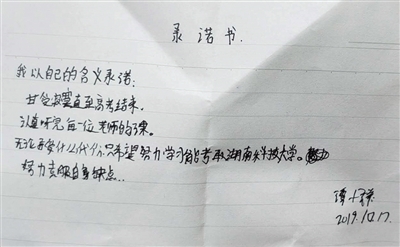 承诺书
我以自己的名义承诺:
甘受寂寞直至高考结束。
认真听完每一位老师的课。
无论再要什么代价只希望努力学习能考取湖南科技大学。
努力克服自身缺点..
谭小
2019.10.17.